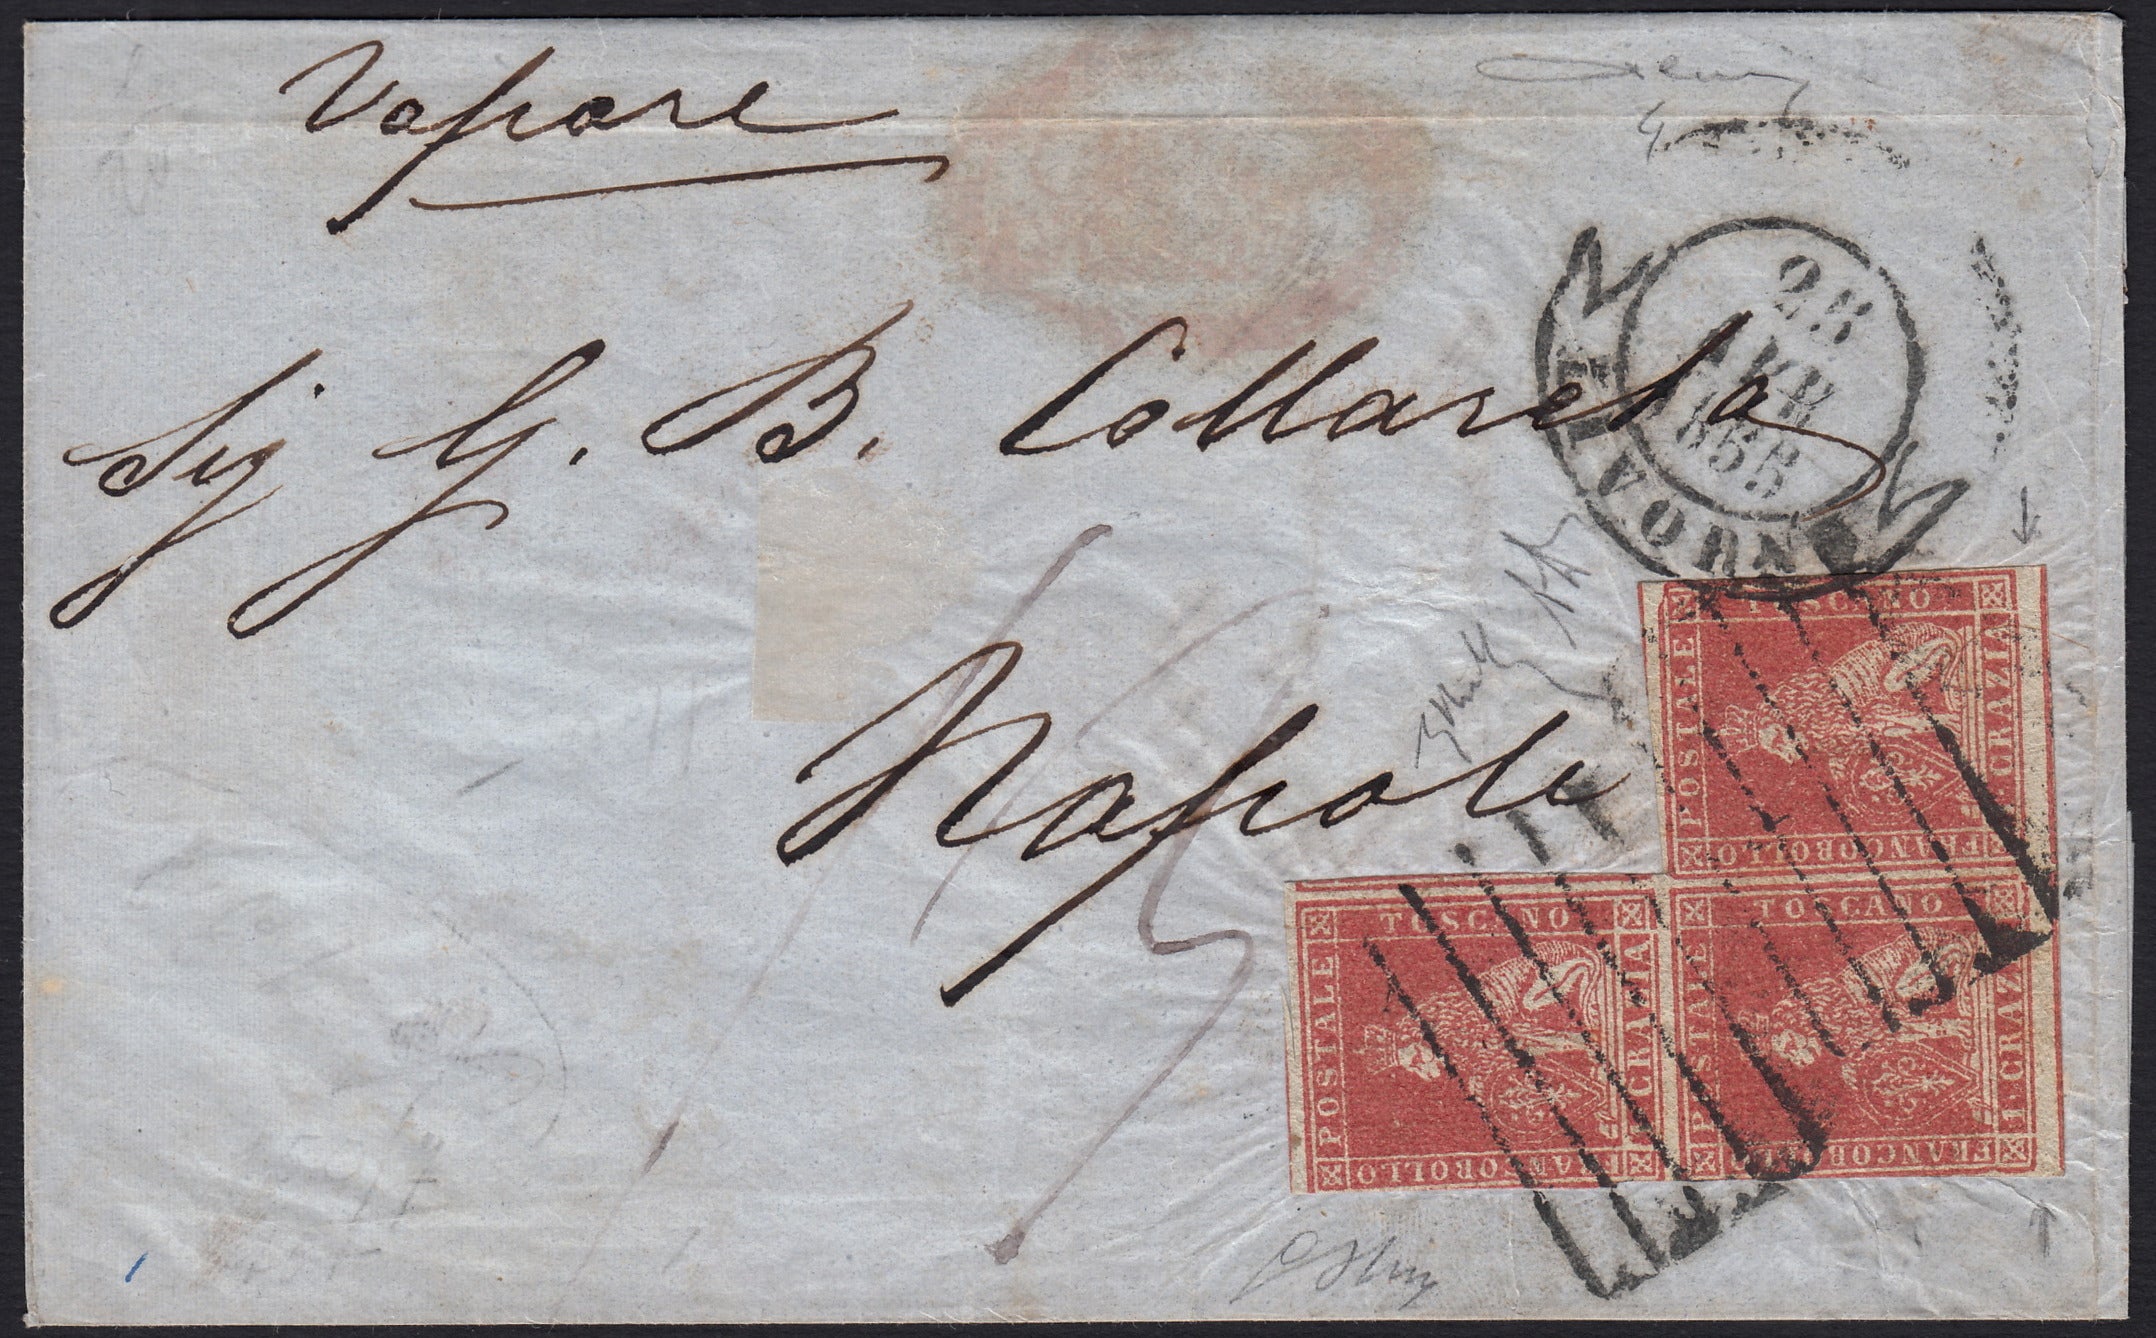 Vapore
Sig G. B. Collareta
Napoli
28
APR
1855
LIVORNO
TOSCANO
POSTALE
1 CRAZIA
FRANCOBOLLO
TOSCANO
POSTALE
1 CRAZIA
FRANCOBOLLO
TOSCANO
POSTALE
1 CRAZIA
FRANCOBOLLO